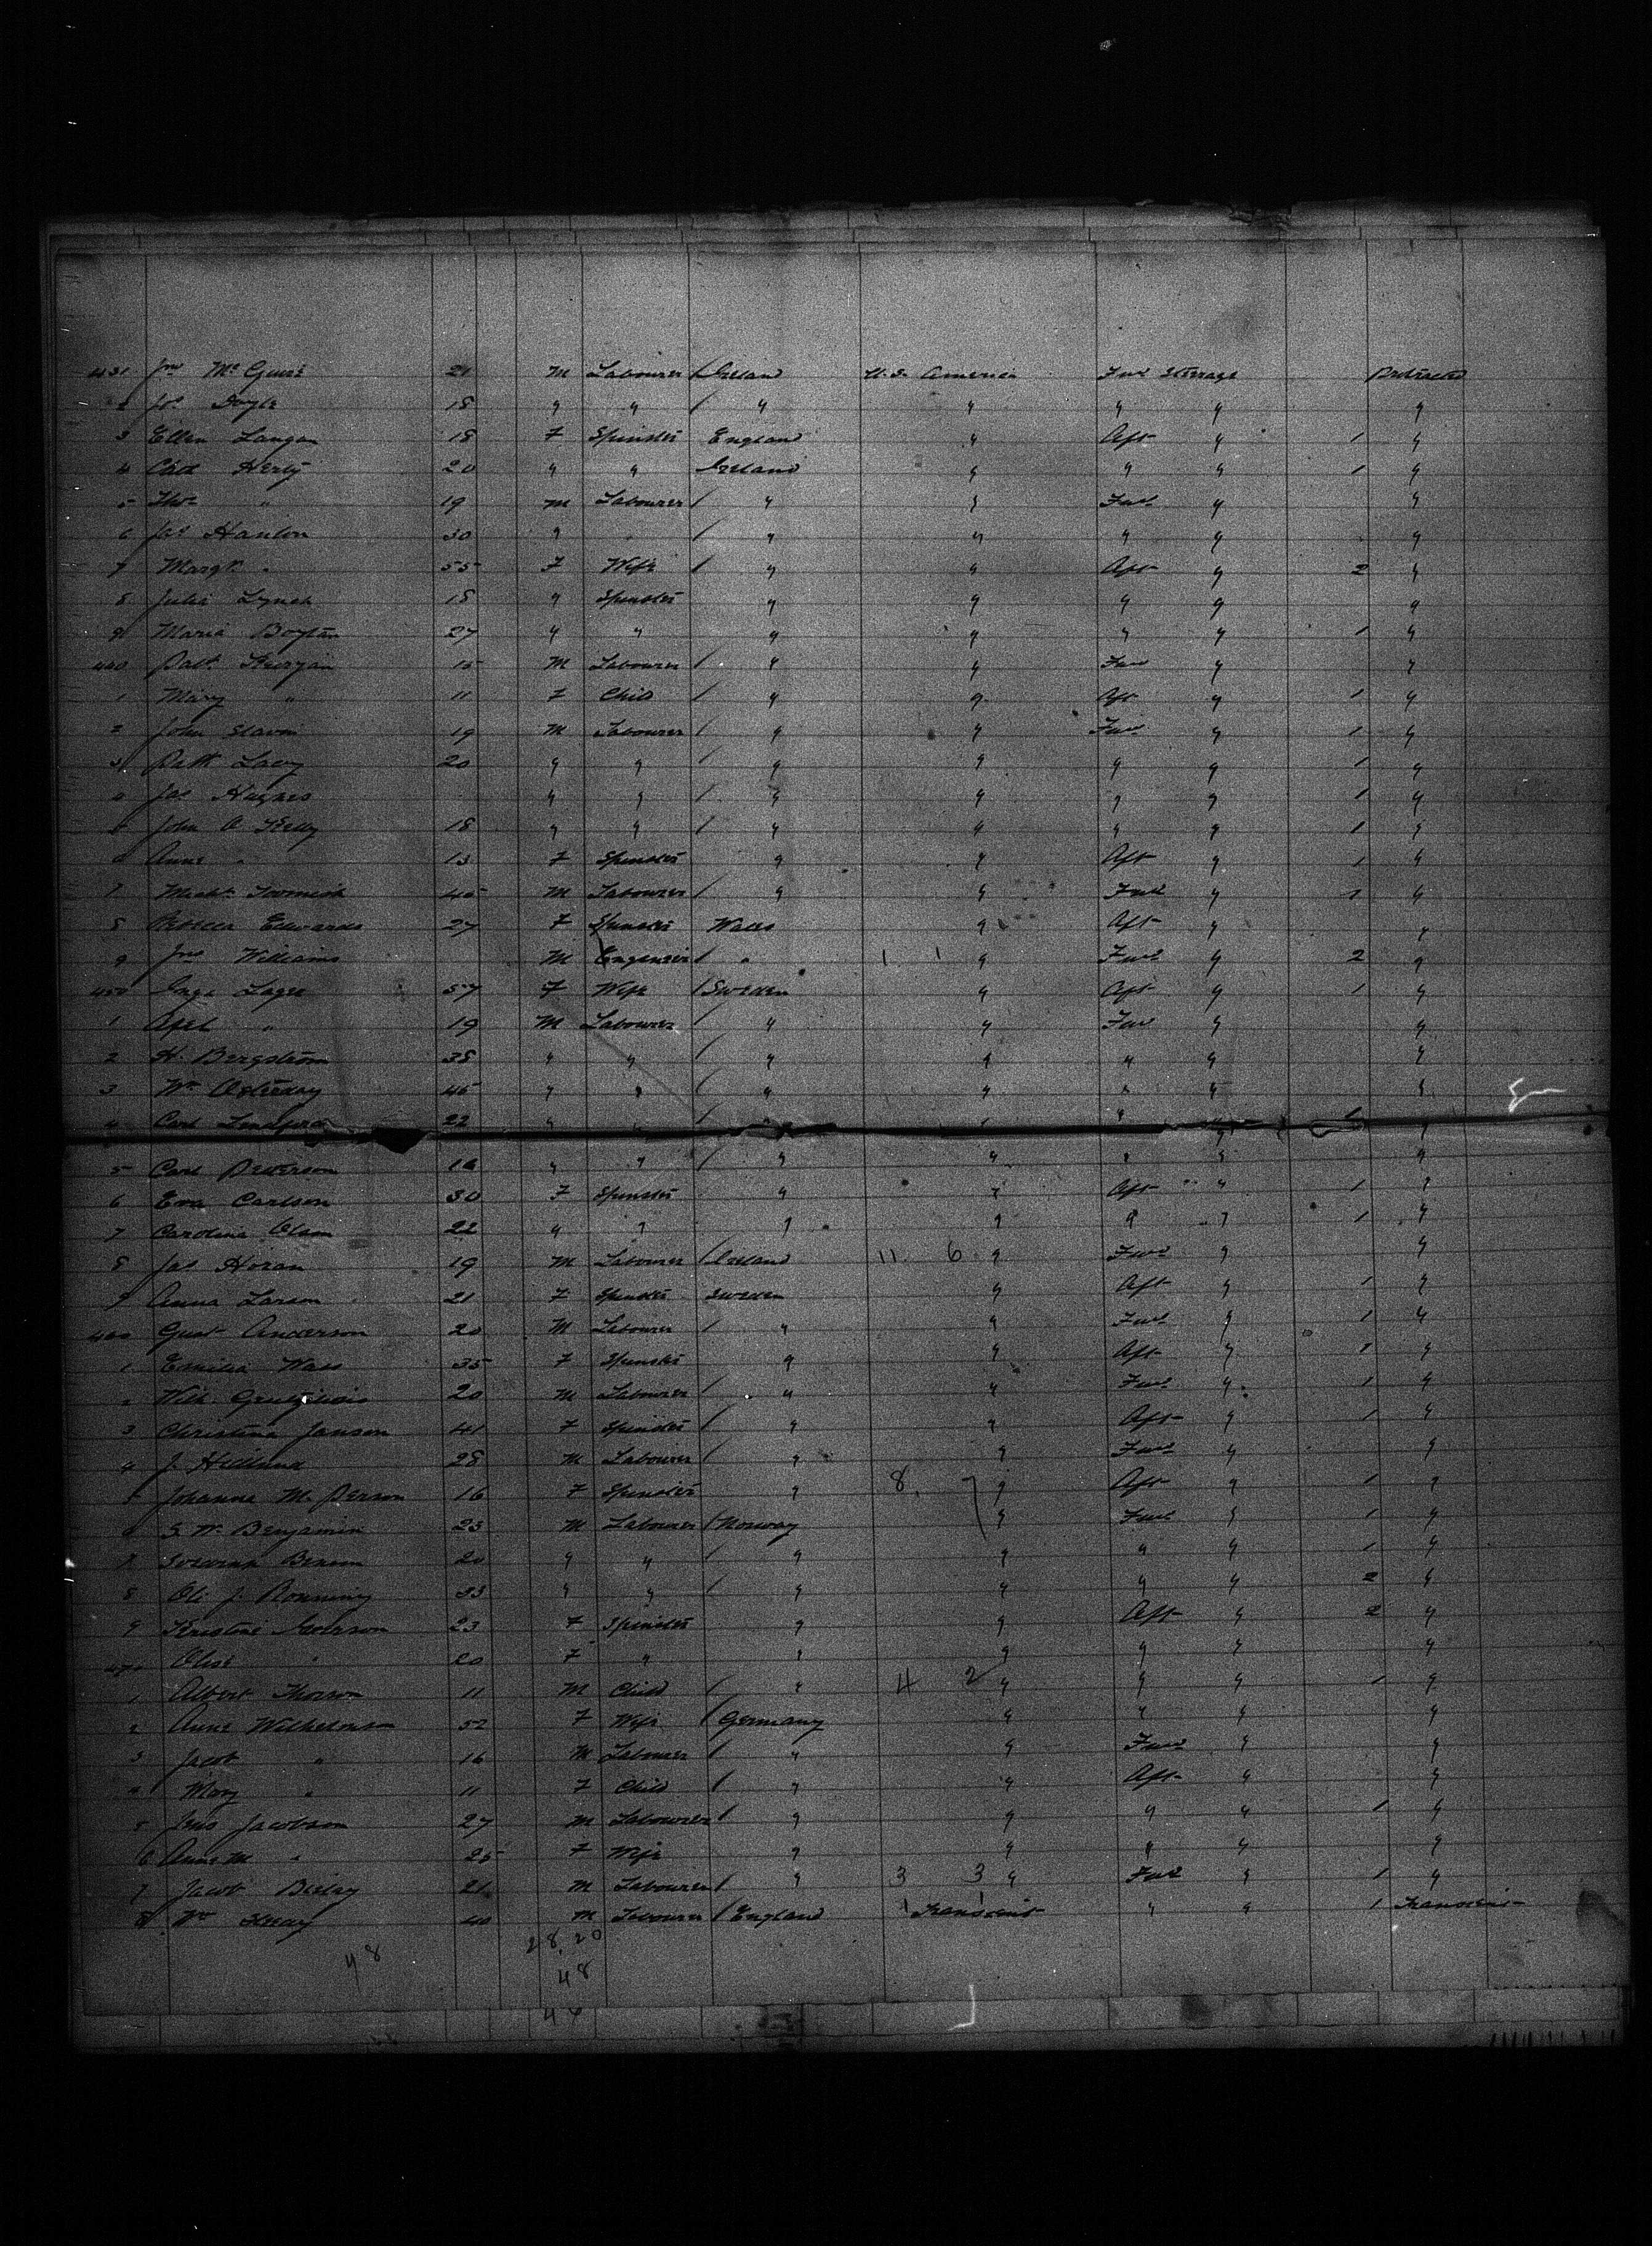 431 Jno McGuire 21 M Labourer / Ireland U.S. America Fwd Steerage Protracted
2 Jos Doyle 18 " " / " " " " "
3 Ellen Langan 18 F Spinster England " Aft " 1 "
4 Cath 20 " " Ireland " " " 1 "
5 Thos " 19 M Labourer / " " Fwd " "
6 Jas Hanlon 30 " " / " " " " "
7 Margt " 55 F Wife / " " Aft " 2 "
8 Julia Lynch 18 " Spinster " " " " "
9 Maria Boylan 27 " " " " " " 1 "
440 Patt 15 M Labourer / " " Fwd " "
1 Mary " 11 F Child / " " Aft " 1 "
2 John Slavin 19 M Labourer / " " Fwd " 1 "
3 Patt Lacy 20 " " / " " " " 1 "
4 Jas Hughes " " / " " " " 1 "
5 John O Kelly 18 " " / " " " " 1 "
6 Anne " 13 F Spinster " " Aft " 1 "
7 Michl 45 M Labourer / " " Fwd " 1 "
8 Rebecca Edwards 27 F Spinster Wales " Aft " "
9 Jno Williams M Engineer / " 1 1 " Fwd " 2 "
450 Inga Lager 57 F Wife / Sweden " Aft " 1 "
1 Axel " 19 M Labourer / " " Fwd " "
2 H. Bergstrom 38 " " / " " " " "
3 Wm Osterday 45 " " / " " " " "
4 Carl 22 " " / " " " " 1 "
5 Carl Petterson 16 " " / " " " " "
6 Eva Carlson 30 F Spinster " " Aft " 1 "
7 Carolina Olson 22 " " " " " " 1 "
8 Jas Horan 19 M Labourer / Ireland 11. 6 " Fwd " "
9 Anna Larson 21 F Spinster Sweden " Aft " 1 "
460 Gust Anderson 20 M Labourer / " " Fwd " 1 "
1 Emilia Wass 35 F Spinster " " Aft " 1 "
2 Wilh. 20 M Labourer / " " Fwd " 1 "
3 Christina Janson 41 F Spinster / " " Aft " 1 "
4 J. Hedlund 28 M Labourer / " " Fwd " "
5 Johanna M. Person 16 F Spinster " 8. 7 " Aft " 1 "
6 S. W. Benjamin 23 M Labourer / Norway " Fwd " 1 "
7 Benson 20 " " / " " " " 1 "
8 Ole J. Ronning 33 " " / " " " " 2 "
9 Kristine 23 F Spinster " " Aft " 2 "
470 Oline " 20 F " " " " " "
1 Albert Thorson 11 M Child / " 4 2 " " " 1 "
2 Anne Wilhelmson 52 F Wife / Germany " " " "
3 Jacob " 16 M Labourer / " " Fwd " "
4 Mary " 11 F Child / " " Aft " "
5 Jens Jacobson 27 M Labourer / " " " " 1 "
6 Anne M " 25 F Wife " " " " "
7 Jacob 21 M Labourer / " 3 3 " Fwd " 1 "
8 Wm 40 M Labourer / England 1 1 Transient " " 1 Transient
48 28. 20
48
46